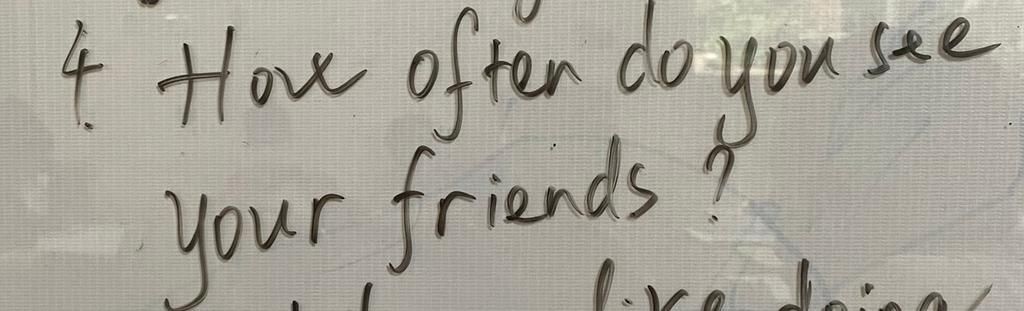 4. How often do you see
your friends?
like doing